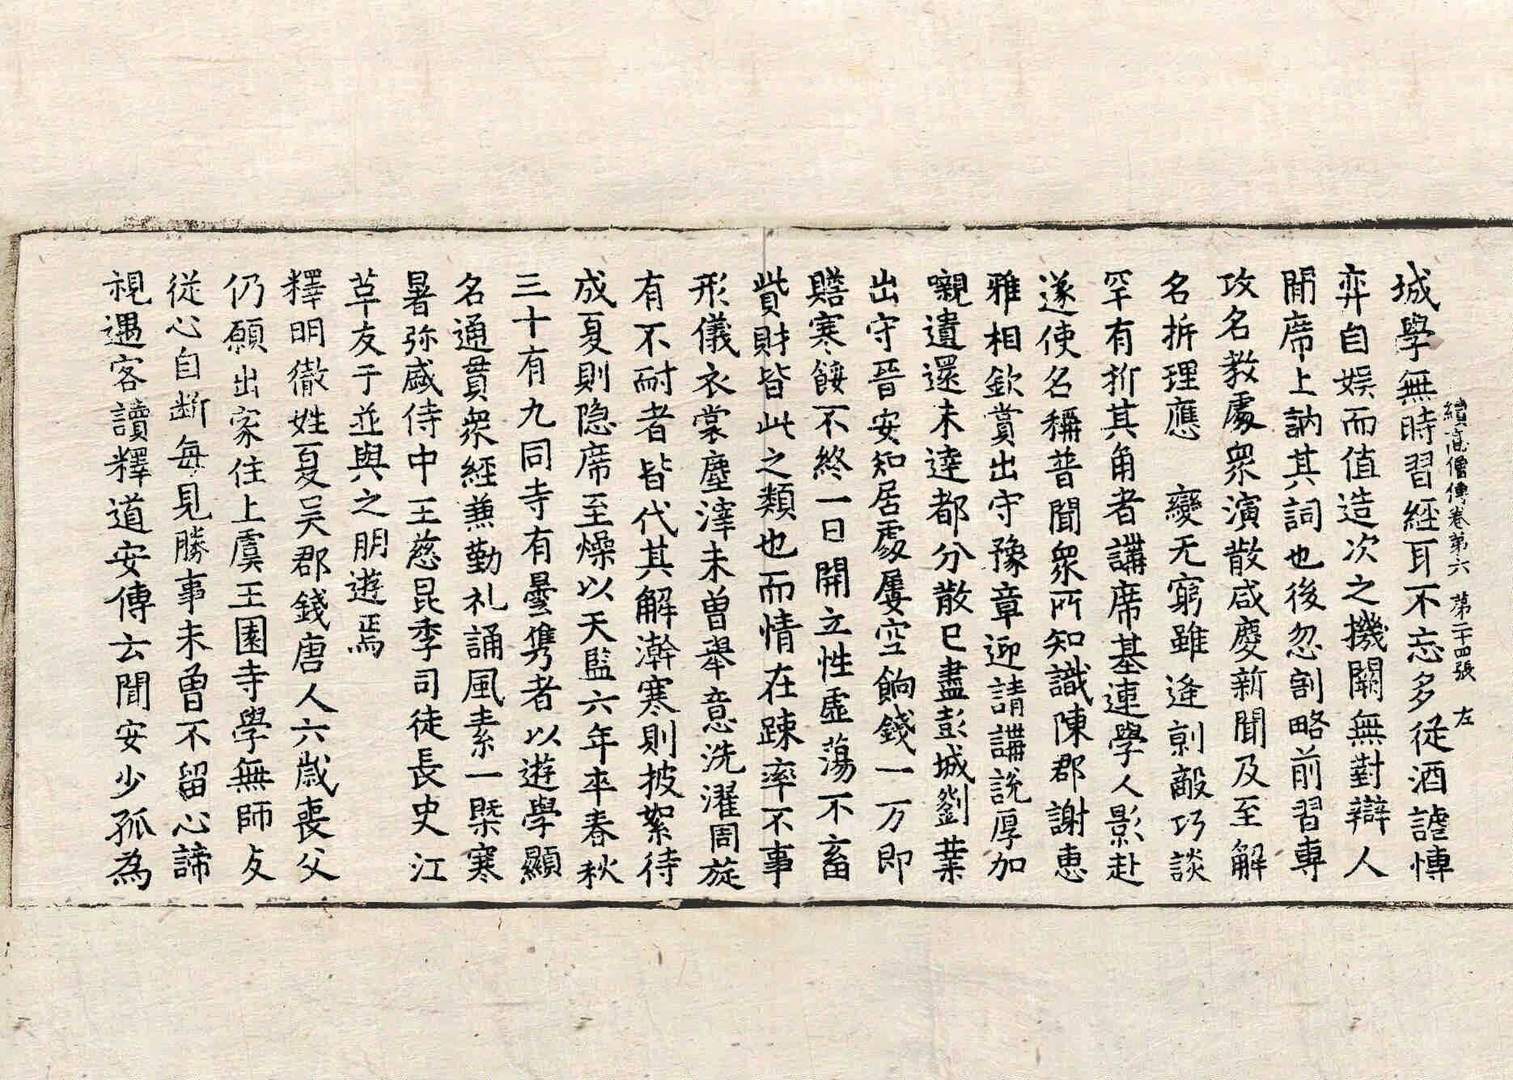 續高僧傳卷第六 第二十四張 左
城學無時習經耳不忘多從酒謔慱
弈自娱而值造次之機關無對辯人
閒席上訥其詞也後忽割略前習專
攻名教處衆演散咸慶新聞及至解
名析理應 變无窮雖逢勍敵巧談
罕有折其角者講席基連學人影赴
遂使名稱普聞衆所知識陳郡謝惠
雅相欽賞出守豫章迎請講説厚加
嚫遺還未達都分散已盡彭城劉業
出守晉安知居處屢空餉錢一万即
賑寒餧不終一日開立性虚蕩不畜
貲財皆此之類也而情在踈率不事
形儀衣裳塵滓未曽舉意洗濯周旋
有不耐者皆代其解澣寒則披絮待
成夏則隐席至燥以天監六年卒春秋
三十有九同寺有曇雋者以遊學顯
名通貫衆經兼勤礼誦風素一槩寒
暑弥盛侍中王慈昆季司徒長史江
革友于並與之朋遊焉
釋明徹姓夏吴郡錢唐人六歳喪父
仍願出家住上虞王園寺學無師友
從心自断每見勝事未曽不留心諦
視遇客讀釋道安傳云聞安少孤為